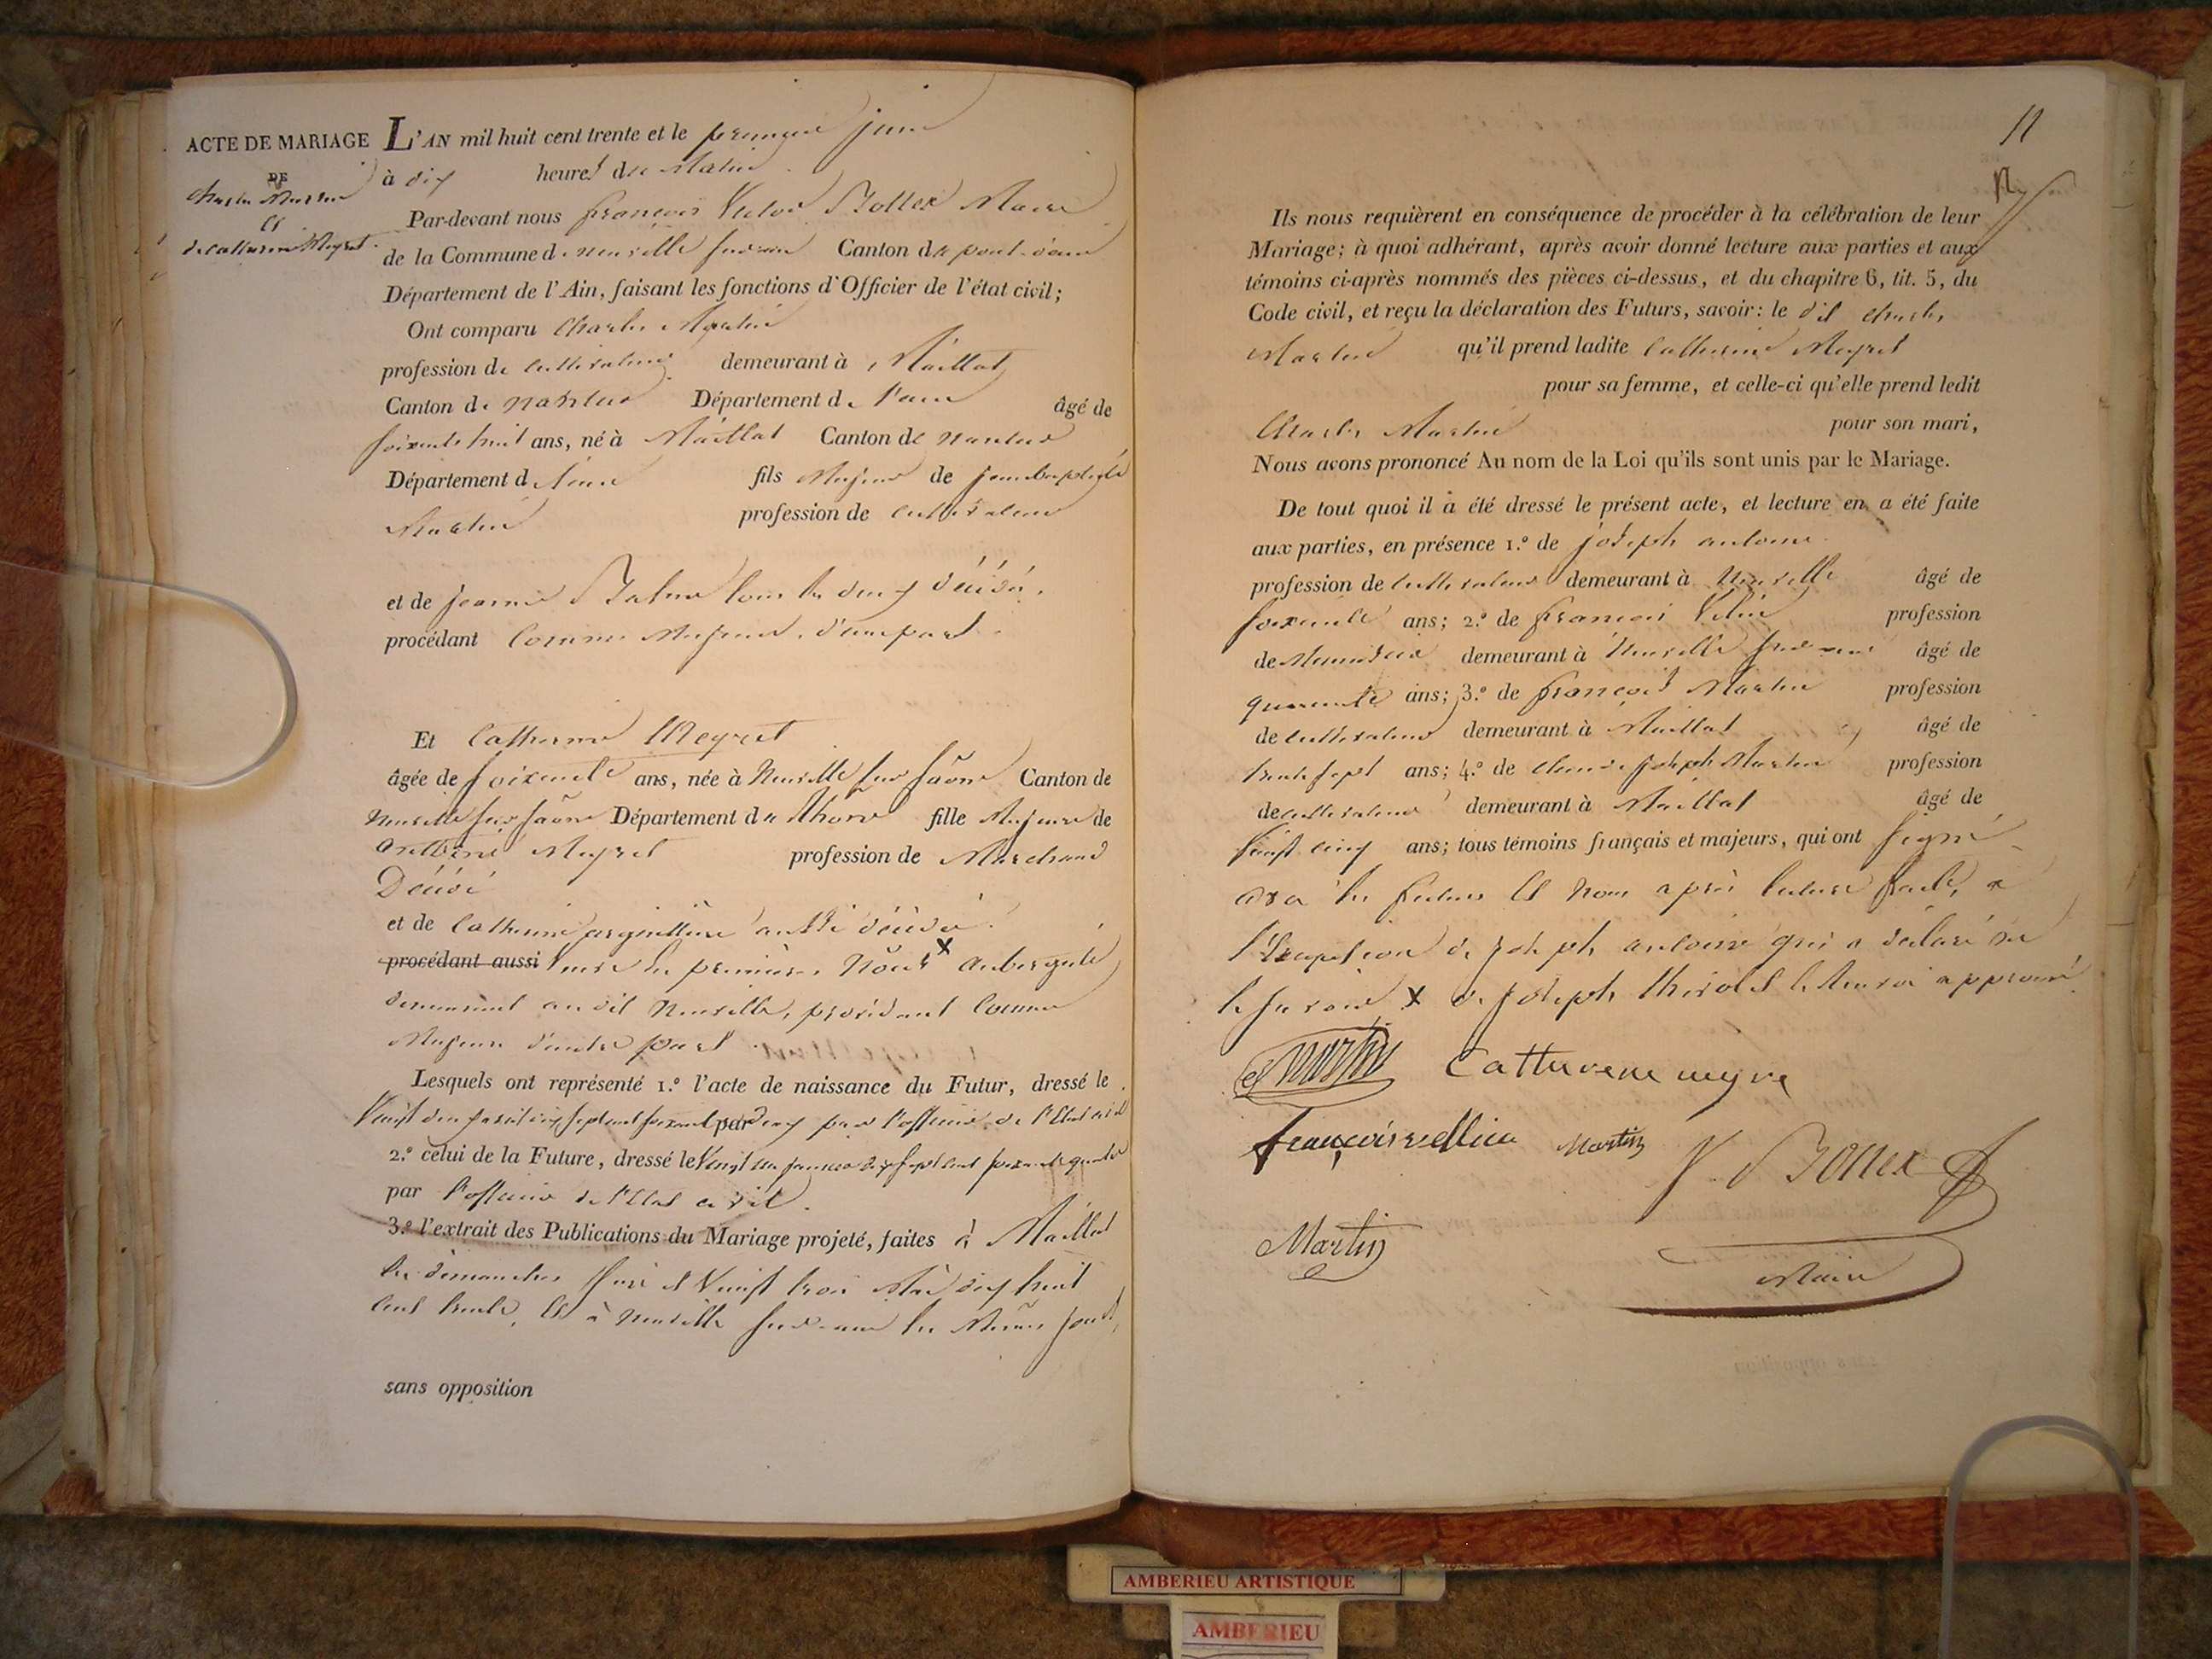 ACTE DE MARIAGE
DE
Charles Martin
et
de Catherine Meyret
L'AN mil huit cent trente et le premier juin
à dix heures du Matin
Par-devant nous françois Victor Bollex Maire
de la Commune de neuville sur ain Canton de pont-d'ain
Département de l'Ain, faisant les fonctions d'Officier de l'état civil;
Ont comparu Charles Martin
profession de cultivateur demeurant à Maillat
Canton de nantua Département de l'ain âgé de
soixante huit ans, né à Maillat Canton de nantua
Département de l'ain fils Majeur de jean baptiste
Martin profession de cultivateur
et de jeanne tous les deux décédés
procédant comme Majeur, d'une part.
Et Catherine Meyret
âgée de soixante ans, née à Neuville sur saône Canton de
Neuville sur saône Département du Rhone fille Majeure de
Meyret profession de Marchand
Décédé
et de Catherine aussi décédée.
procédant aussi Veuve en premières Nôces X aubergiste
demeurant au dit Neuville, procédant comme
Majeure d'autre part
Lesquels ont représenté 1.º l'acte de naissance du Futur, dressé le
Vingt deux dix sept cent soixante deux par l'officier de l'Etat civil
2.º celui de la Future, dressé le Vingt un janvier dix sept cent soixante
par l'officier de l'Etat civil.
3.º l'extrait des Publications du Mariage projeté, faites à Maillat
les dimanches seize et Vingt trois Mai dix huit
cent trente, et à neuville sur ain les Mêmes jours,
sans opposition
11
Ils nous requièrent en conséquence de procéder à la célébration de leur
Mariage; à quoi adhérant, après avoir donné lecture aux parties et aux
témoins ci-après nommés des pièces ci-dessus, et du chapitre 6, tit. 5, du
Code civil, et reçu la déclaration des Futurs, savoir: le dit charles
Martin qu'il prend ladite Catherine Meyret
pour sa femme, et celle-ci qu'elle prend ledit
Charles Martin pour son mari,
Nous avons prononcé Au nom de la Loi qu'ils sont unis par le Mariage.
De tout quoi il a été dressé le présent acte, et lecture en a été faite
aux parties, en présence 1.º de joseph antoine
profession de cultivateur demeurant à Neuville âgé de
soixante ans; 2.º de françois Vellin profession
de Menuisier demeurant à Neuville sur ain âgé de
quarante ans; 3.º de françois Martin profession
de cultivateur demeurant à Maillat âgé de
trente sept ans; 4.º de claude joseph Martin profession
de cultivateur demeurant à Maillat âgé de
Vingt cinq ans; tous témoins français et majeurs, qui ont signé
avec les futurs et nous après lecture faite, a
l'Exception de joseph antoine qui a déclaré ne
le savoir X de joseph le renvoi approuvé
C Martin Catterene meyre
françois vellien Martin V Bollex
Martin Maire
AMBERIEU ARTISTIQUE
AMBERIEU